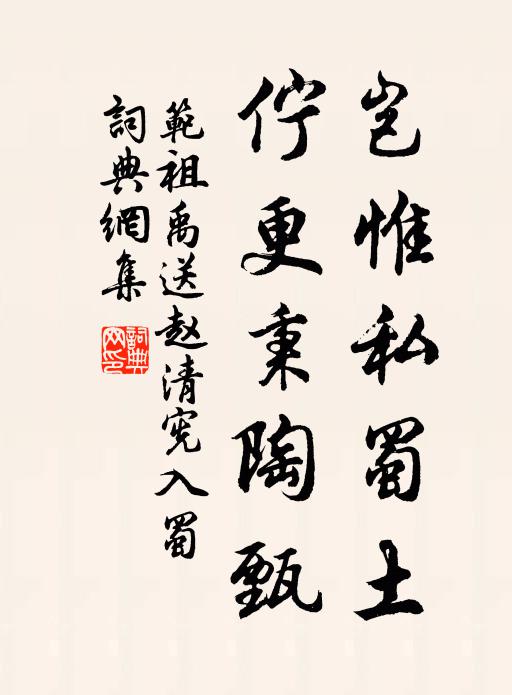 岂惟私蜀土
佇更秉陶甄
範祖禹送赵清宪入蜀
詞典網集
詞典網印